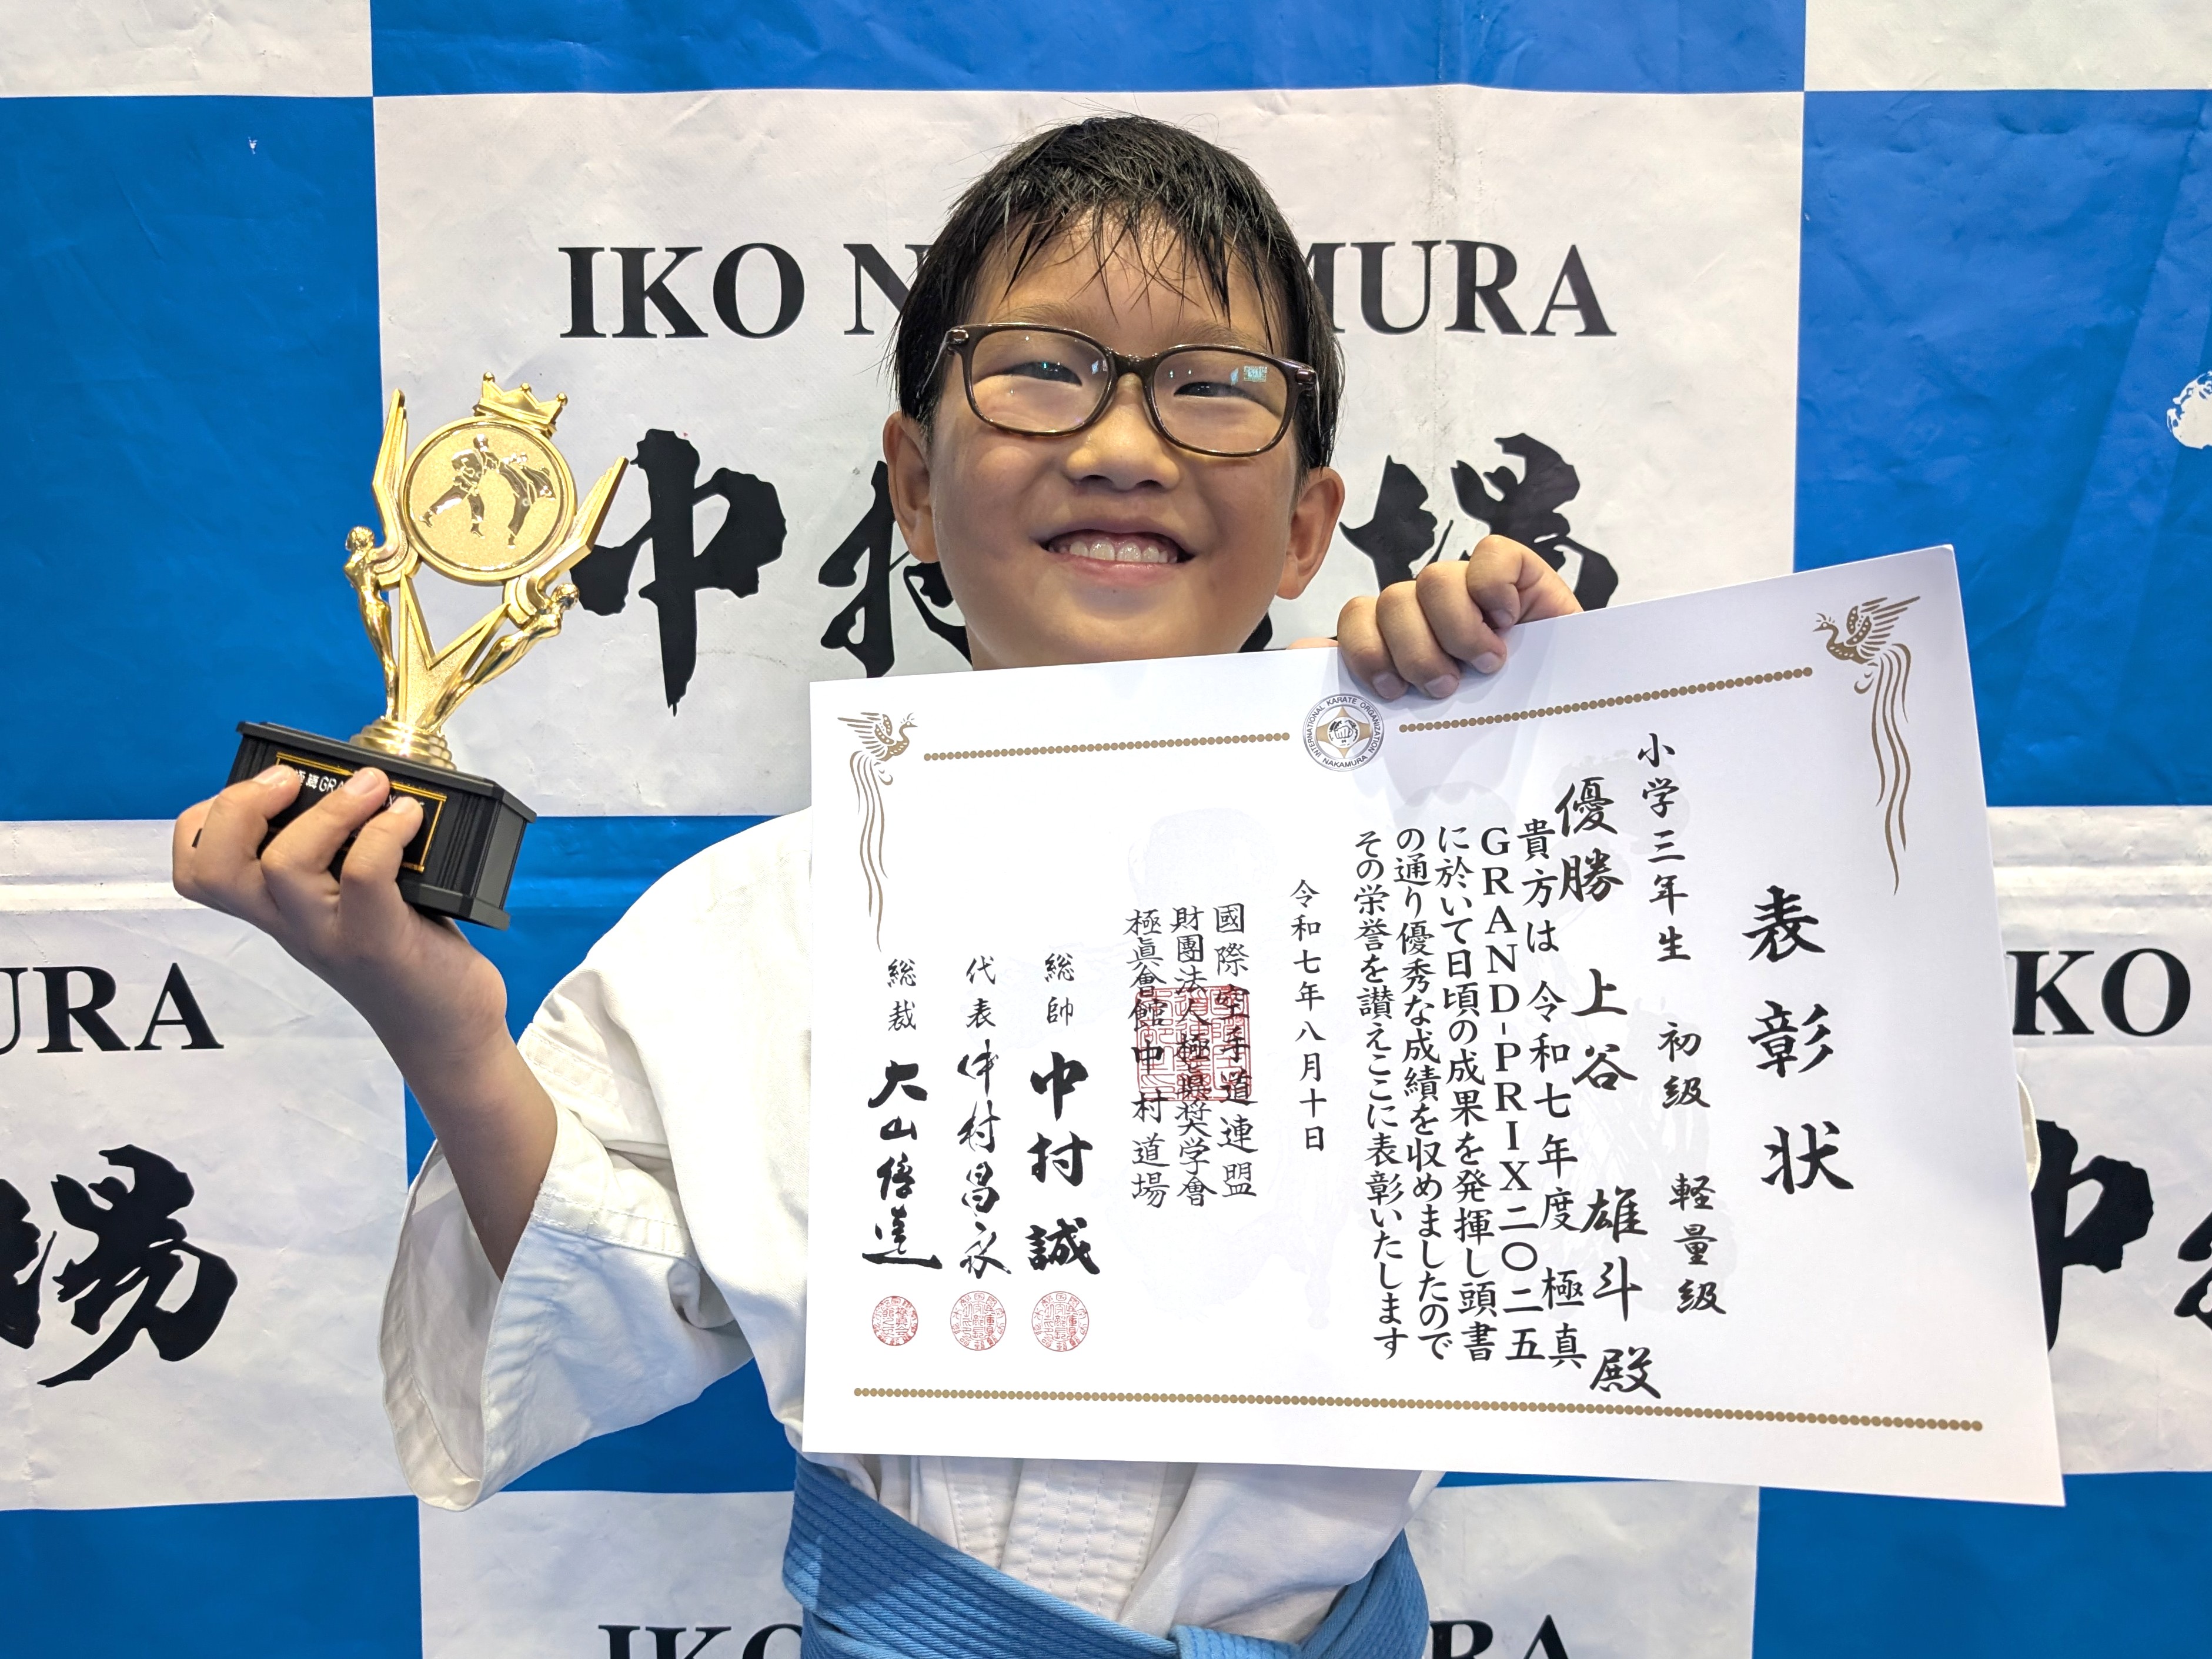 IKO N
MURA
中村
場
URA
場
KO
中
IKO
RA
INTERNATIONAL KARATE ORGANIZATION
NAKAMURA
表彰状
小学三年生 初級 軽量級
優勝 上谷 雄斗 殿
貴方は令和七年度 極真
GRAND-PRIX二〇二五
に於いて日頃の成果を発揮し頭書
の通り優秀な成績を収めましたので
その栄誉を讃えここに表彰いたします
令和七年八月十日
國際空手道連盟
財團法人極真奨学會
極眞會館中村道場
総帥 中村 誠
代表 中村昌永
総裁 大山倍達